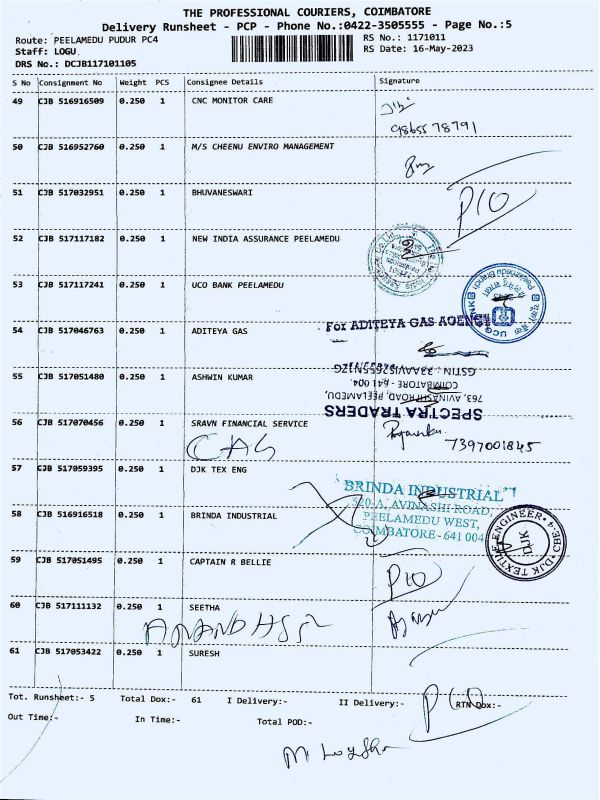 THE PROFESSIONAL COURIERS, COIMBATORE
Delivery Runsheet - PCP - Phone No.:0422-3505555 - Page No.:5
Route: PEELAMEDU PUDUR PC4
RS No.: 1171011
Staff: LOGU
RS Date: 16-May-2023
DRS No.: DCJB117101105
S No Consignment No Weight PCS Consignee Details Signature
49 CJB 516916509 0.250 1 CNC MONITOR CARE
9865578791
50 CJB 516952760 0.250 1 M/S CHEENU ENVIRO MANAGEMENT
51 CJB 517032951 0.250 1 BHUVANESWARI
P10
52 CJB 517117182 0.250 1 NEW INDIA ASSURANCE PEELAMEDU
53 CJB 517117241 0.250 1 UCO BANK PEELAMEDU
Peelamedu Branch
UCO BANK
54 CJB 517046763 0.250 1 ADITEYA GAS
For ADITEYA GAS AGENCY
55 CJB 517051480 0.250 1 ASHWIN KUMAR
SPECTRA TRADERS
763, AVINASHI ROAD, PEELAMEDU,
COIMBATORE - 641 004.
56 CJB 517070456 0.250 1 SRAVN FINANCIAL SERVICE
CAG
7397001845
57 CJB 517059395 0.250 1 DJK TEX ENG
BRINDA INDUSTRIAL
520-A, AVINASHI ROAD,
PEELAMEDU WEST,
COIMBATORE - 641 004
58 CJB 516916518 0.250 1 BRINDA INDUSTRIAL
DJK TEXTILE ENGINEER CBE-4
DJK
59 CJB 517051495 0.250 1 CAPTAIN R BELLIE
P10
60 CJB 517111132 0.250 1 SEETHA
61 CJB 517053422 0.250 1 SURESH
Tot. Runsheet:- 5 Total Dox:- 61 I Delivery:- II Delivery:- RTN Dox:-
Out Time:- In Time:- Total POD:-